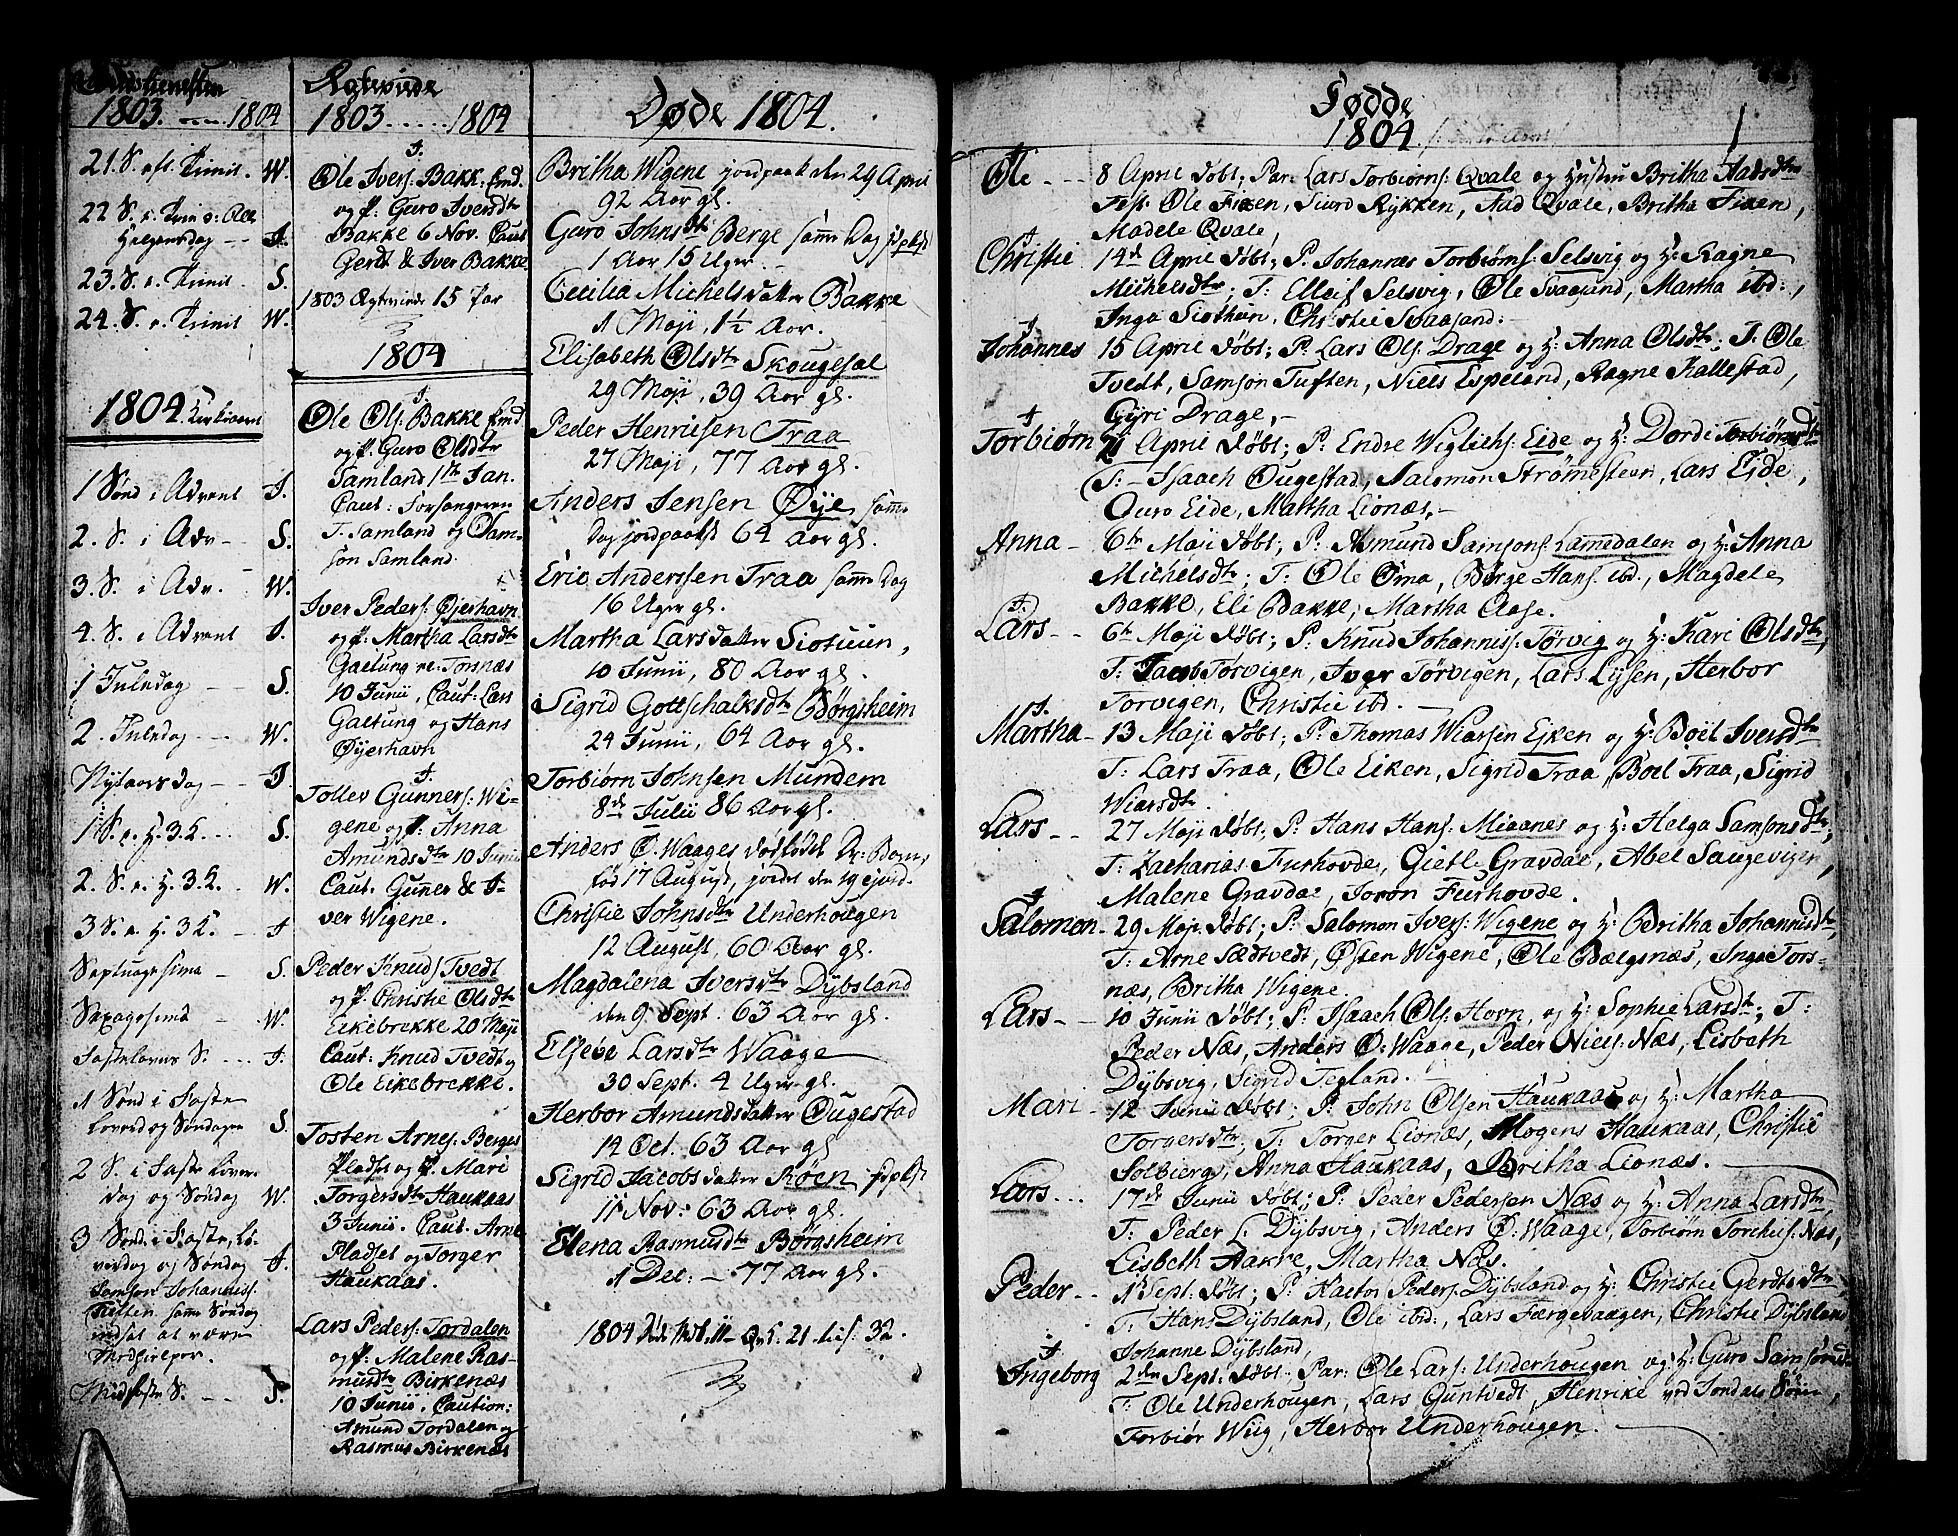 1803 ---- 1804
21. S. eft. Trinit. W.
22 S. e. Trin: o: Alle
Helgensdag -- J.
23. S. e. Trinit. S.
24. S. e. Trinit W.
1804.
1 Sønd i Advent J.
2. S. i Adv -- S.
3. S. i Adv. -- W.
4. S. i Advent J.
1 Juledag -- S.
2. Juledag --- W.
Nytaarsdag -- J.
1 S. e. H. 3 K. ... S.
2. S. e. H. 3 K. -- W.
3 S. e. H. 3 K. -- J
Septuagesima -- S.
Sexagesima -- W.
Fastelavns S. --- J.
1 Sønd i Faste
Løverd og Søndagen S.
2 S. i Faste Løver-
dag og Søndag W.
3 Sønd. i Faste, Lø-
verdag og Søndag J.
Samson Johanniss:
Tuften samme Søndag
indsat at være
Medhielper.
Midfaste S. -- S.
Ægteviede
1803 ..... 1804
J.
Ole Ivers: Bakke Emd.
og P: Guro Iversdtr
Bakke 6 Nov. Caut
Gerdt & Iver Bakke
1803 Ægteviede 15 Par
1804
J.
Ole Ols: Bakke Emd.
og P: Guro Olsdtr
Samland 1ste Jan.
Caut: Forsangeren
T. Samland og Sam-
son Samland.
Iver Peders: Øjerhavn
og P: Martha Larsdtr
Galtung re: Torsnæs
10 Junii, Caut: Lars
Galtung og Hans
Øyerhavn
J.
Tollev Gunners: Wi-
gene og P: Anna
Amundsdtr 10 Junii
Caut: Guner & I-
ver Wigene.
Peder Knuds: Tvedt
og P. Christie Olsdtr
Eikebrekke 20 Maji
Caut: Knud Tvedt og
Ole Eikebrekke.
Tosten Arnes: Berges
Pladset og P. Mari
Torgersdtr Haukaas
3 Junii. Caut. Arne
Pladset og Torger
Haukaas.
Lars Peders: Tordalen
og P: Malene Ras-
musdtr Birkenæs
10 Junii, Caution:
Amund Tordalen og
Rasmus Birkenæs
Døde 1804.
Britha Wigene jordpaak den 29 April
92 Aar gl.
Guro Johnsdtr Berge samme Dag
1 Aar 15 Uger. --
Cecilia Michelsdatter Bakke
1 Maji, 1½ Aar.
Elisabeth Olsdtr Skougesal
29 Maji, 39 Aar gl.
Peder Henriksen Traa
27 Maji, 77 Aar gl.
Anders Jensen Øye samme
Dag jordpaak 64 Aar gl.
Eric Anderssen Traa samme Dag
16 Uger gl.
Martha Larsdatter Siotuun,
10 Junii, 80 Aar gl.
Sigrid Gottschalksdtr Børgsheim
24 Junii, 64 Aar gl.
Torbiørn Johnsen Mundem
8de Julii 86 Aar gl.
Anders Ø. Waages dødfødde Dr: Barn,
fød 17 August, jordet den 19 ejusd.
Christie Johnsdtr Underhougen
12 August, 60 Aar gl.
Magdalena Iversdtr Dybsland
den 9 Sept. 63 Aar gl.
Elseve Larsdtr Waage
30 Sept. 4 Uger gl.
Herbor Amundsdatter Øugestad
14 Oct. 63 Aar gl
Sigrid Jacobsdatter Røen
11 Nov: 63 Aar gl.
Elena Rasmusdtr Børgsheim
1 Dec: -- 77 Aar gl.
1804 Døde Mk. 11 -- Qvk. 21. til s: 32.
Fødde
1804.
Ole -- 8 April døbt; Par: Lars Torbiørns: Qvale og Hustru Britha Aadsdtr
Test: Ole Fixen, Siurd Rykken, Aad Qvale, Britha Fixen,
Madele Qvale,
J
Christie 14de April døbt; P. Johannes Torbiørns: Selsvig og H: Ragne
Michelsdtr; T: Elleif Selsvig, Ole Svaasand, Martha ibd:,
Inga Siothun, Christie Svaasand. --
J
Johannes 15 April døbt; P. Lars Ols: Drage og H: Anna Olsdtr; T. Ole
Tvedt, Samson Tuften, Niels Espeland, Ragne Kallestad,
Gyri Drage, --
J
Torbiørn 21 April døbt; P: Endre Wiglichs: Eide og H: Dordi Torbiørnsdtr
T: -- Isaach Øugestad, Salomon Strømesteen, Lars Eide,
Guro Eide, Martha Lionæs, --
Anna -- 6te Maji døbt; P: Asmund Samsons: Lamedalen og H: Anna
Michelsdtr; T: Ole Oma, Børge Hans. ibd., Magdele
Bakke, Eli Bakke, Martha Aase.
J.
Lars -- 6te Maji døbt; P: Knud Johanniss: Tørvig og H: Kari Olsdtr,
T: Jacob Tørvigen, Iver Tørvigen, Lars Lyssen, Herbor
Torvigen, Christie ibd. --
J.
Martha -- 13 Maji døbt; P: Thomas Wiarsen Ejken og H: Boël Iversdtr
T: Lars Traa, Ole Eiken, Sigrid Traa, Boel Traa, Sigrid
Wiarsdtr.
Lars -- 27 Maji døbt; P: Hans Hans: Miaanes og H: Helga Samsonsdtr,
T: Zacharias Furhovde, Gietle Gravdal, Abel Saugevigen,
Malene Gravdal, Joron Furhovde.
J
Salomon -- 29 Maji døbt; P: Salomon Ivers: Wigene og H: Britha Johannisdtr,
T: Arne Sædtvedt, Østen Wigene, Ole Bælgsnæs, Inga Tors-
næs, Britha Wigene.
Lars -- 10 Junii døbt; P: Isaach Ols: Hovn, og H: Sophie Larsdtr; T:
Peder Næs, Anders Ø: Waage, Peder Niels: Næs, Lisbeth
Dybsvig, Sigrid Tegland. --
Mari -- 12 Junii døbt; P: John Olsen Haukaas og H: Martha
Torgersdtr; T: Torger Lionæs, Mogens Haukaas, Christie
Solbierg, Anna Haukaas, Britha Lionæs. --
Lars ... 17de Junii døbt; P: Peder Pedersen Næs og H: Anna Larsdtr,
T: Peder L. Dybsvig, Anders Ø: Waage, Torbiørn Torchels: Næs,
Lisbeth Aakre, Martha Næs.
Peder -- 1 Sept. døbt; P. Hactor Peders: Dybsland og H: Christie Gerdtsdtr
T: Hans Dybsland, Ole ibd:, Lars Færgevaagen, Christie Dybsland
Johanne Dybsland,
J
Ingeborg 2den Sept. døbt; Par: Ole Lars: Underhougen og H: Guro Samsonsdtr
T: Ole Underhougen, Lars Guntvedt, Henrike ved Søndals Søen,
Torbiør Wiig, Herbor Underhougen.